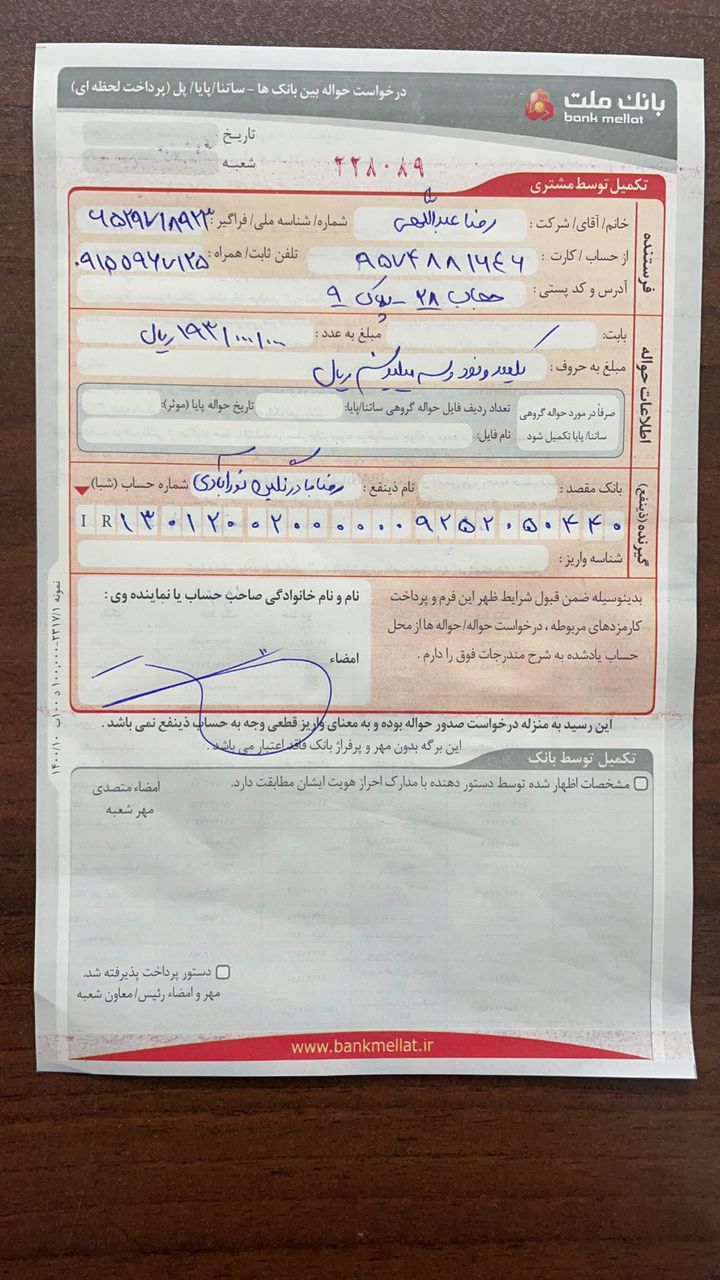 بانک ملت
bank mellat
درخواست حواله بین بانک ها - ساتنا/پایا/ پل (پرداخت لحظه ای)
تاریخ
شعبه
۲۲۸۰۸۹
تکمیل توسط مشتری
فرستنده
خانم/ آقای/ شرکت : رضا عبداللهی شماره/ شناسه ملی/ فراگیر :
از حساب / کارت : تلفن ثابت/ همراه :
آدرس و کد پستی : حجاب ۲۸ - پلاک ۹
اطلاعات حواله
بابت: مبلغ به عدد : ۱۹۳/۰۰۰/۰۰۰ ریال
مبلغ به حروف : یکصد و نود و سه میلیون ریال
صرفاً در مورد حواله گروهی ساتنا/ پایا تکمیل شود
تعداد ردیف فایل حواله گروهی ساتنا/پایا: تاریخ حواله پایا (موثر):
نام فایل:
گیرنده (ذینفع)
بانک مقصد : نام ذینفع : شماره حساب (شبا)
IR ۱۳۰۱۲۰۰۲۰۰۰۰۰۰۹۲۵۲۰۵۰۴۴۰
شناسه واریز :
بدینوسیله ضمن قبول شرایط ظهر این فرم و پرداخت
کارمزدهای مربوطه ، درخواست حواله/ حواله ها از محل
حساب یادشده به شرح مندرجات فوق را دارم .
نام و نام خانوادگی صاحب حساب یا نماینده وی :
امضاء
این رسید به منزله درخواست صدور حواله بوده و به معنای واریز قطعی وجه به حساب ذینفع نمی باشد .
این برگه بدون مهر و پرفراژ بانک فاقد اعتبار می باشد .
تکمیل توسط بانک
مشخصات اظهار شده توسط دستور دهنده با مدارک احراز هویت ایشان مطابقت دارد.
امضاء متصدی
مهر شعبه
دستور پرداخت پذیرفته شد.
مهر و امضاء رئیس/ معاون شعبه
www.bankmellat.ir